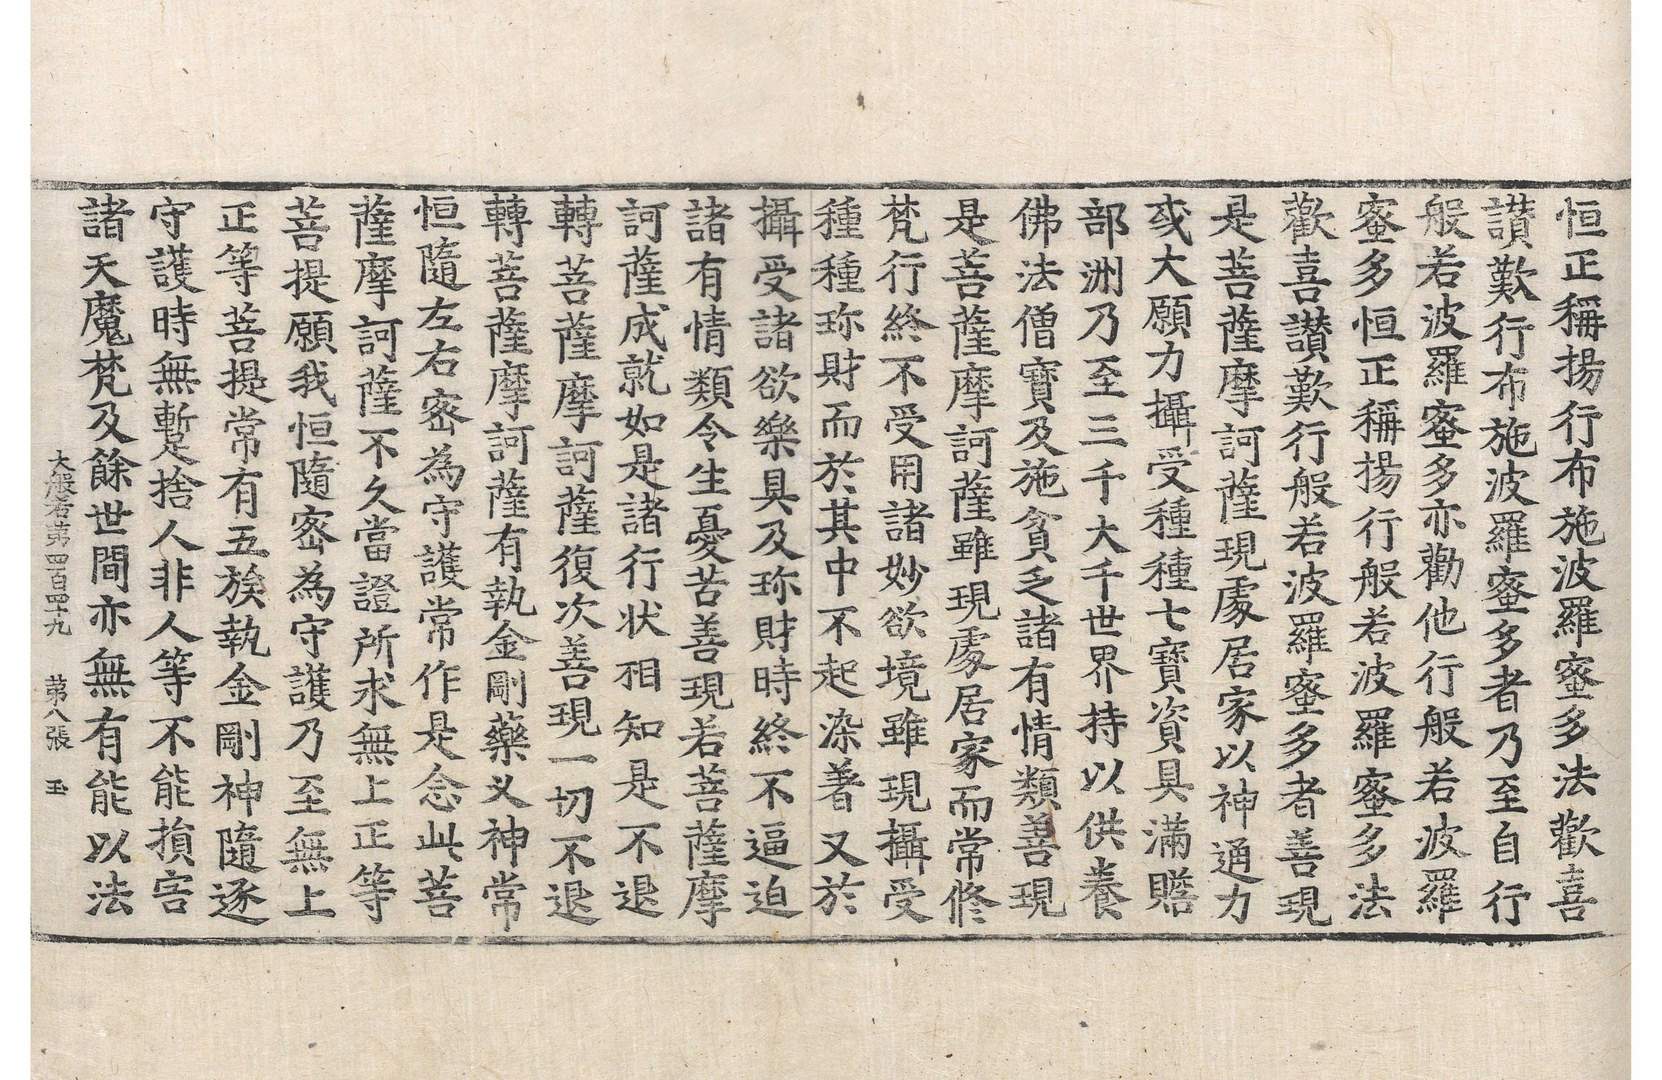 恒正稱揚行布施波羅蜜多法歡喜
讃歎行布施波羅蜜多者乃至自行
般若波羅蜜多亦勸他行般若波羅
蜜多恒正稱揚行般若波羅蜜多法
歡喜讃歎行般若波羅蜜多者善現
是菩薩摩訶薩現處居家以神通力
或大願力攝受種種七寶資具滿贍
部洲乃至三千大千世界持以供養
佛法僧寶及施貧乏諸有情類善現
是菩薩摩訶薩雖現處居家而常修
梵行終不受用諸妙欲境雖現攝受
種種珎財而於其中不起染著又於
攝受諸欲樂具及珎財時終不逼迫
諸有情類令生憂苦善現若菩薩摩
訶薩成就如是諸行状相知是不退
轉菩薩摩訶薩復次善現一切不退
轉菩薩摩訶薩有執金剛藥叉神常
恒隨左右密為守護常作是念此菩
薩摩訶薩不久當證所求無上正等
菩提願我恒隨密為守護乃至無上
正等菩提常有五族執金剛神隨逐
守護時無暫捨人非人等不能損害
諸天魔梵及餘世間亦無有能以法
大般若第四百四十九 第八張 玉